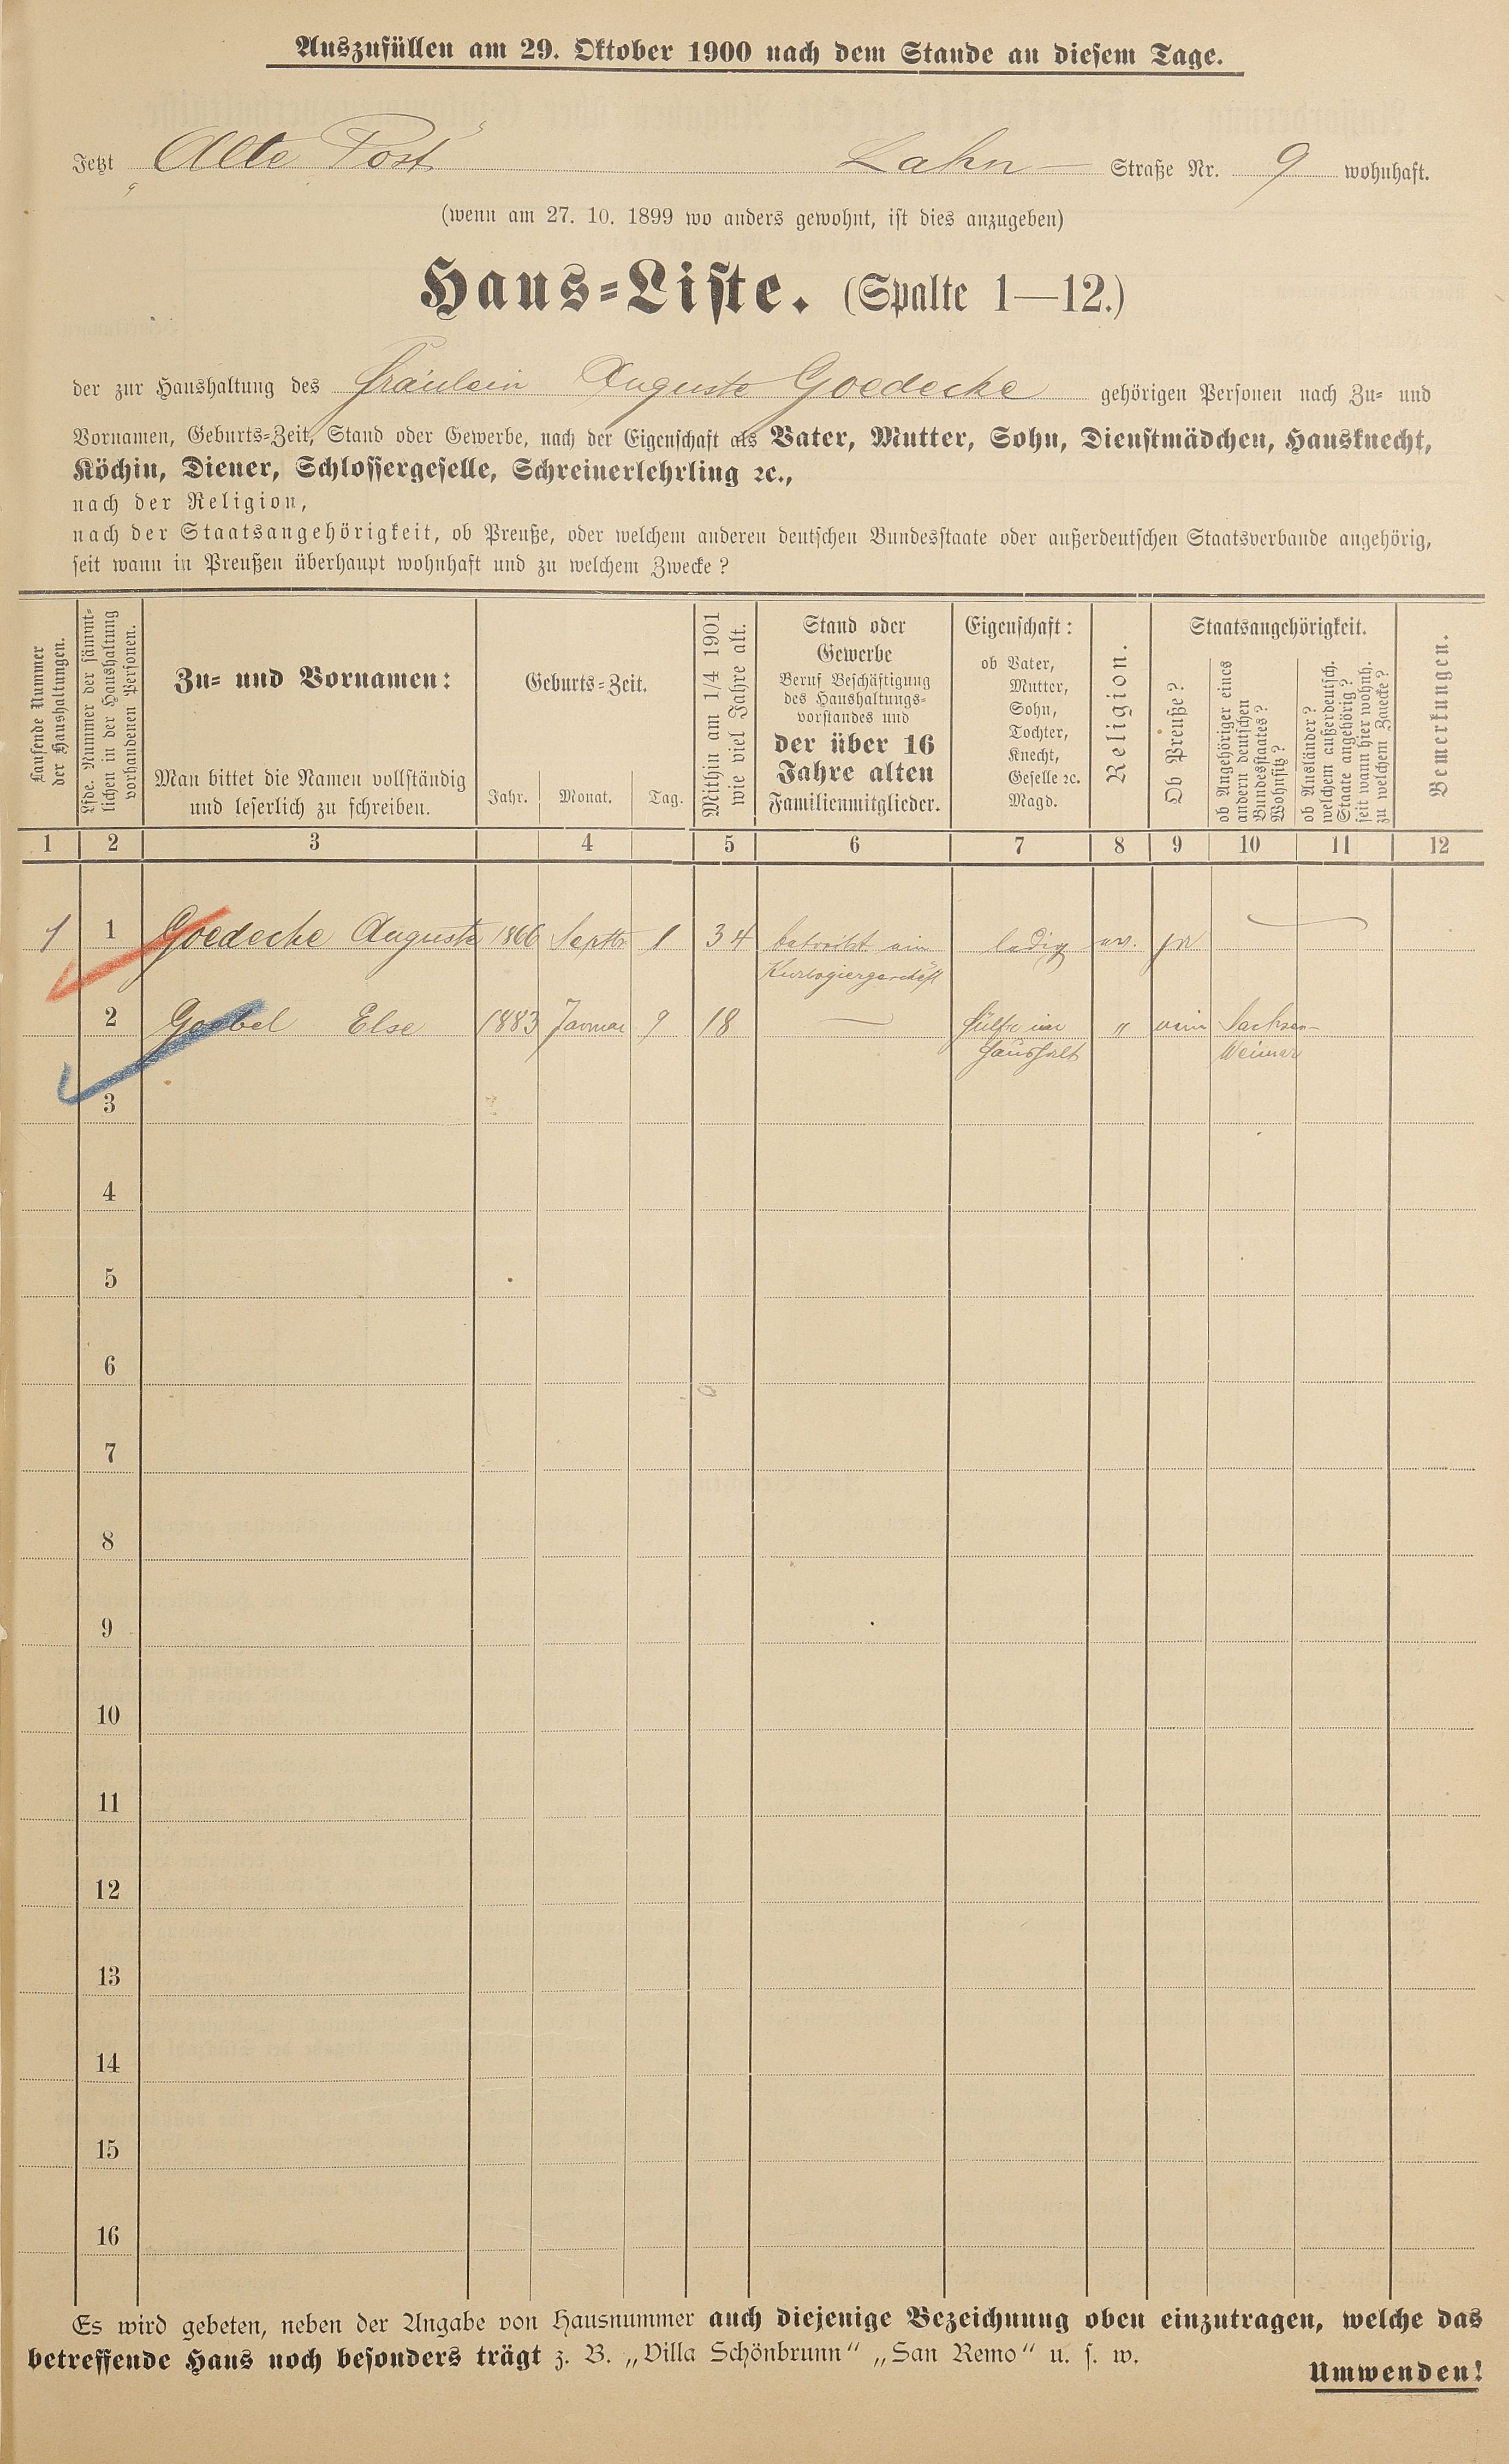 Auszufüllen am 29. Oktober 1900 nach dem Stande an diesem Tage.
Jetzt „Alte Post“ Lahn- Straße Nr. 9 wohnhaft.
(wenn am 27. 10. 1899 wo anders gewohnt, ist dies anzugeben)
Haus-Liste. (Spalte 1—12.)
der zur Haushaltung des Fräulein Auguste Goedecke gehörigen Personen nach Zu- und
Vornamen, Geburts-Zeit, Stand oder Gewerbe, nach der Eigenschaft als Vater, Mutter, Sohn, Dienstmädchen, Hausknecht,
Köchin, Diener, Schlossergeselle, Schreinerlehrling ꝛc.,
nach der Religion,
nach der Staatsangehörigkeit, ob Preuße, oder welchem anderen deutschen Bundesstaate oder außerdeutschen Staatsverbande angehörig,
seit wann in Preußen überhaupt wohnhaft und zu welchem Zwecke?
Laufende Nummer
der Haushaltungen.
Lfde. Nummer der sämmt-
lichen in der Haushaltung
vorhandenen Personen.
Zu- und Vornamen:
Man bittet die Namen vollständig
und leserlich zu schreiben.
Geburts-Zeit.
Jahr. Monat. Tag.
Mithin am 1/4 1901
wie viel Jahre alt.
Stand oder
Gewerbe
Beruf Beschäftigung
des Haushaltungs-
vorstandes und
der über 16
Jahre alten
Familienmitglieder.
Eigenschaft:
ob Vater,
Mutter,
Sohn,
Tochter,
Knecht,
Geselle ꝛc.
Magd.
Religion.
Staatsangehörigkeit.
Ob Preuße?
ob Angehöriger eines
andern deutschen
Bundesstaates?
Wohnsitz?
ob Ausländer?
welchem außerdeutsch.
Staate angehörig?
seit wann hier wohnh.
zu welchem Zwecke?
Bemerkungen.
1 2 3 4 5 6 7 8 9 10 11 12
1 1 Goedecke Auguste 1866 Septbr 1 34 betreibt ein ledig ev. ja
Kurlogiergeschäft
2 Goebel Else 1883 Januar 9 18 — Hülfe im " nein Sachsen-
Haushalt Weimar
3
4
5
6
7
8
9
10
11
12
13
14
15
16
Es wird gebeten, neben der Angabe von Hausnummer auch diejenige Bezeichnung oben einzutragen, welche das
betreffende Haus noch besonders trägt z. B. „Villa Schönbrunn“ „San Remo“ u. s. w.
Umwenden!